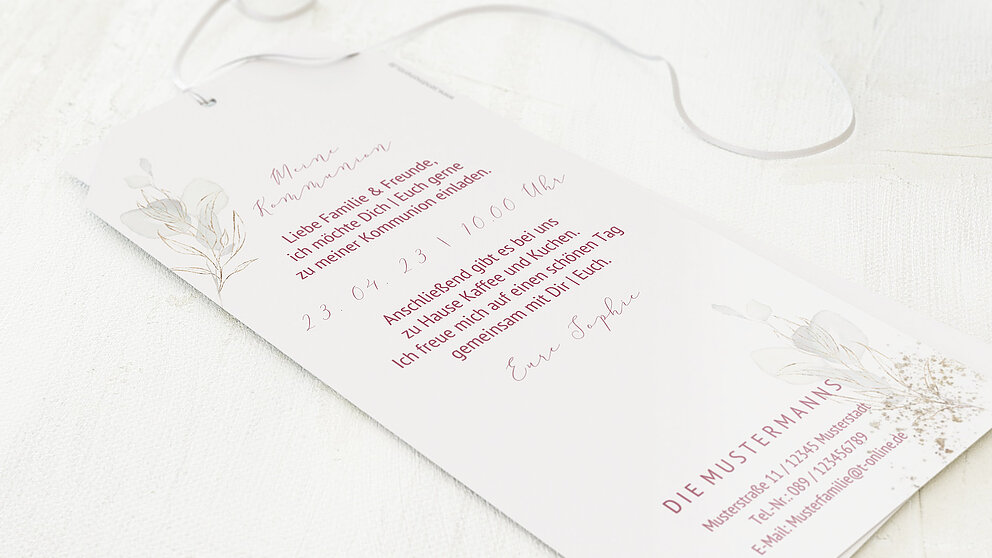 Meine
Kommunion
Liebe Familie & Freunde,
ich möchte Dich | Euch gerne
zu meiner Kommunion einladen.
23. 04. 23 \ 10.00 Uhr
Anschließend gibt es bei uns
zu Hause Kaffee und Kuchen.
Ich freue mich auf einen schönen Tag
gemeinsam mit Dir | Euch.
Eure Sophie
DIE MUSTERMANNS
Musterstraße 11 / 12345 Musterstadt
Tel.-Nr.: 089 / 123456789
E-Mail: Musterfamilie@t-online.de